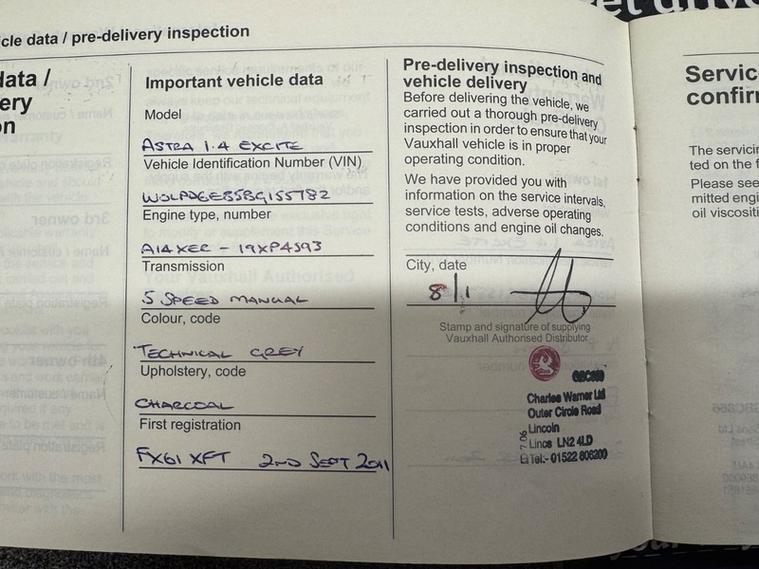 et drive
cle data / pre-delivery inspection
data /
ery
on
Important vehicle data
Model
ASTRA 1.4 EXCITE
Vehicle Identification Number (VIN)
Engine type, number
A14XEC - 19XP4593
Transmission
5 SPEED MANUAL
Colour, code
TECHNICAL GREY
Upholstery, code
CHARCOAL
First registration
FX61 XFT 2ND SEPT 2011
Pre-delivery inspection and
vehicle delivery
Before delivering the vehicle, we
carried out a thorough pre-delivery
inspection in order to ensure that your
Vauxhall vehicle is in proper
operating condition.
We have provided you with
information on the service intervals,
service tests, adverse operating
conditions and engine oil changes.
City, date
Stamp and signature of supplying
Vauxhall Authorised Distributor
Charles Warner Ltd
Outer Circle Road
Lincoln
Lincs LN2 4LD
Tel:- 01522 806200
7.06
Servic
confir
The servicin
ted on the f
Please see
mitted engi
oil viscositi